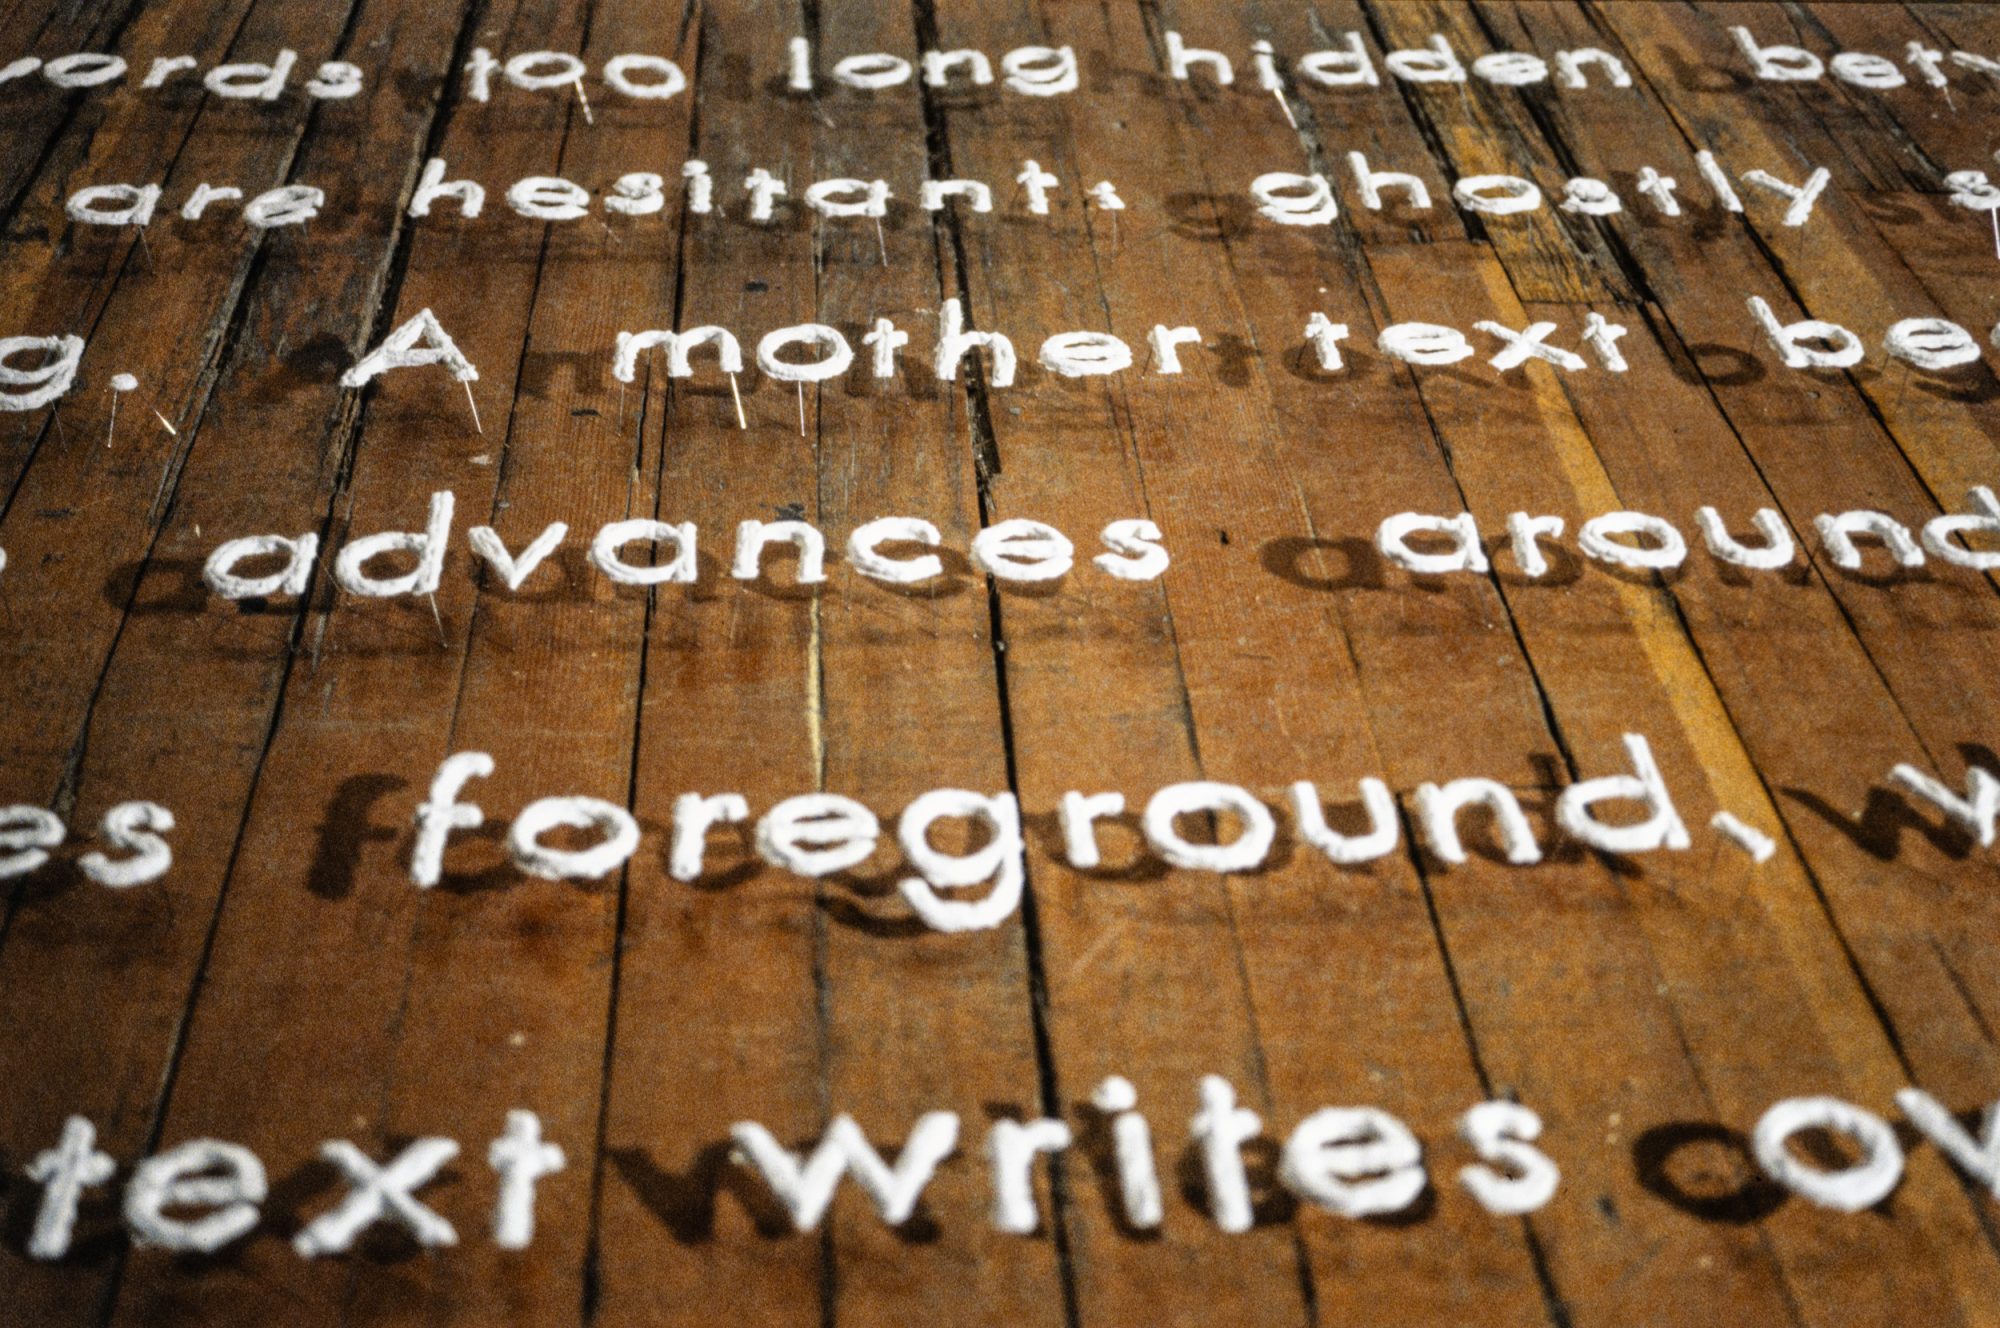 ords too long hidden bet
are hesitant. ghostly s
g. A mother text be
advances around
es foreground, w
text writes ov